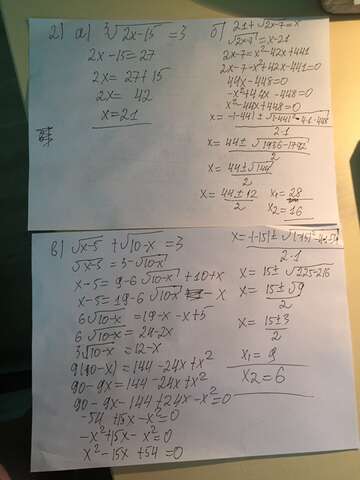 2) а) ∛2x-15 = 3
2x-15=27
2x= 27+15
2x= 42
x=21
б) 21+√2x-7=x
√2x-7=x-21
2x-7=x²-42x+441
2x-7-x²+42x-441=0
44x-448=0
-x²+44x-448=0
x²-44x+448=0
x=
2·1
x= 44±√1936-1792
2
x= 44±√144
2
x= 44±12 x₁=28
2 x₂=16
в) √x-5 + √10-x =3
√x-5=3-√10-x
x-5=9-6√10-x+10-x
x-5=19-6√10-x - x
6√10-x=19-x-x+5
6√10-x=24-2x
3√10-x=12-x
9(10-x)=144-24x+x²
90-9x=144-24x+x²
90-9x-144+24x-x²=0
-54+15x-x²=0
-x²+15x-x²=0
x²-15x+54=0
2·1
x= 15±√225-216
x= 15±√9
2
x= 15±3
2
x₁=9
x₂=6